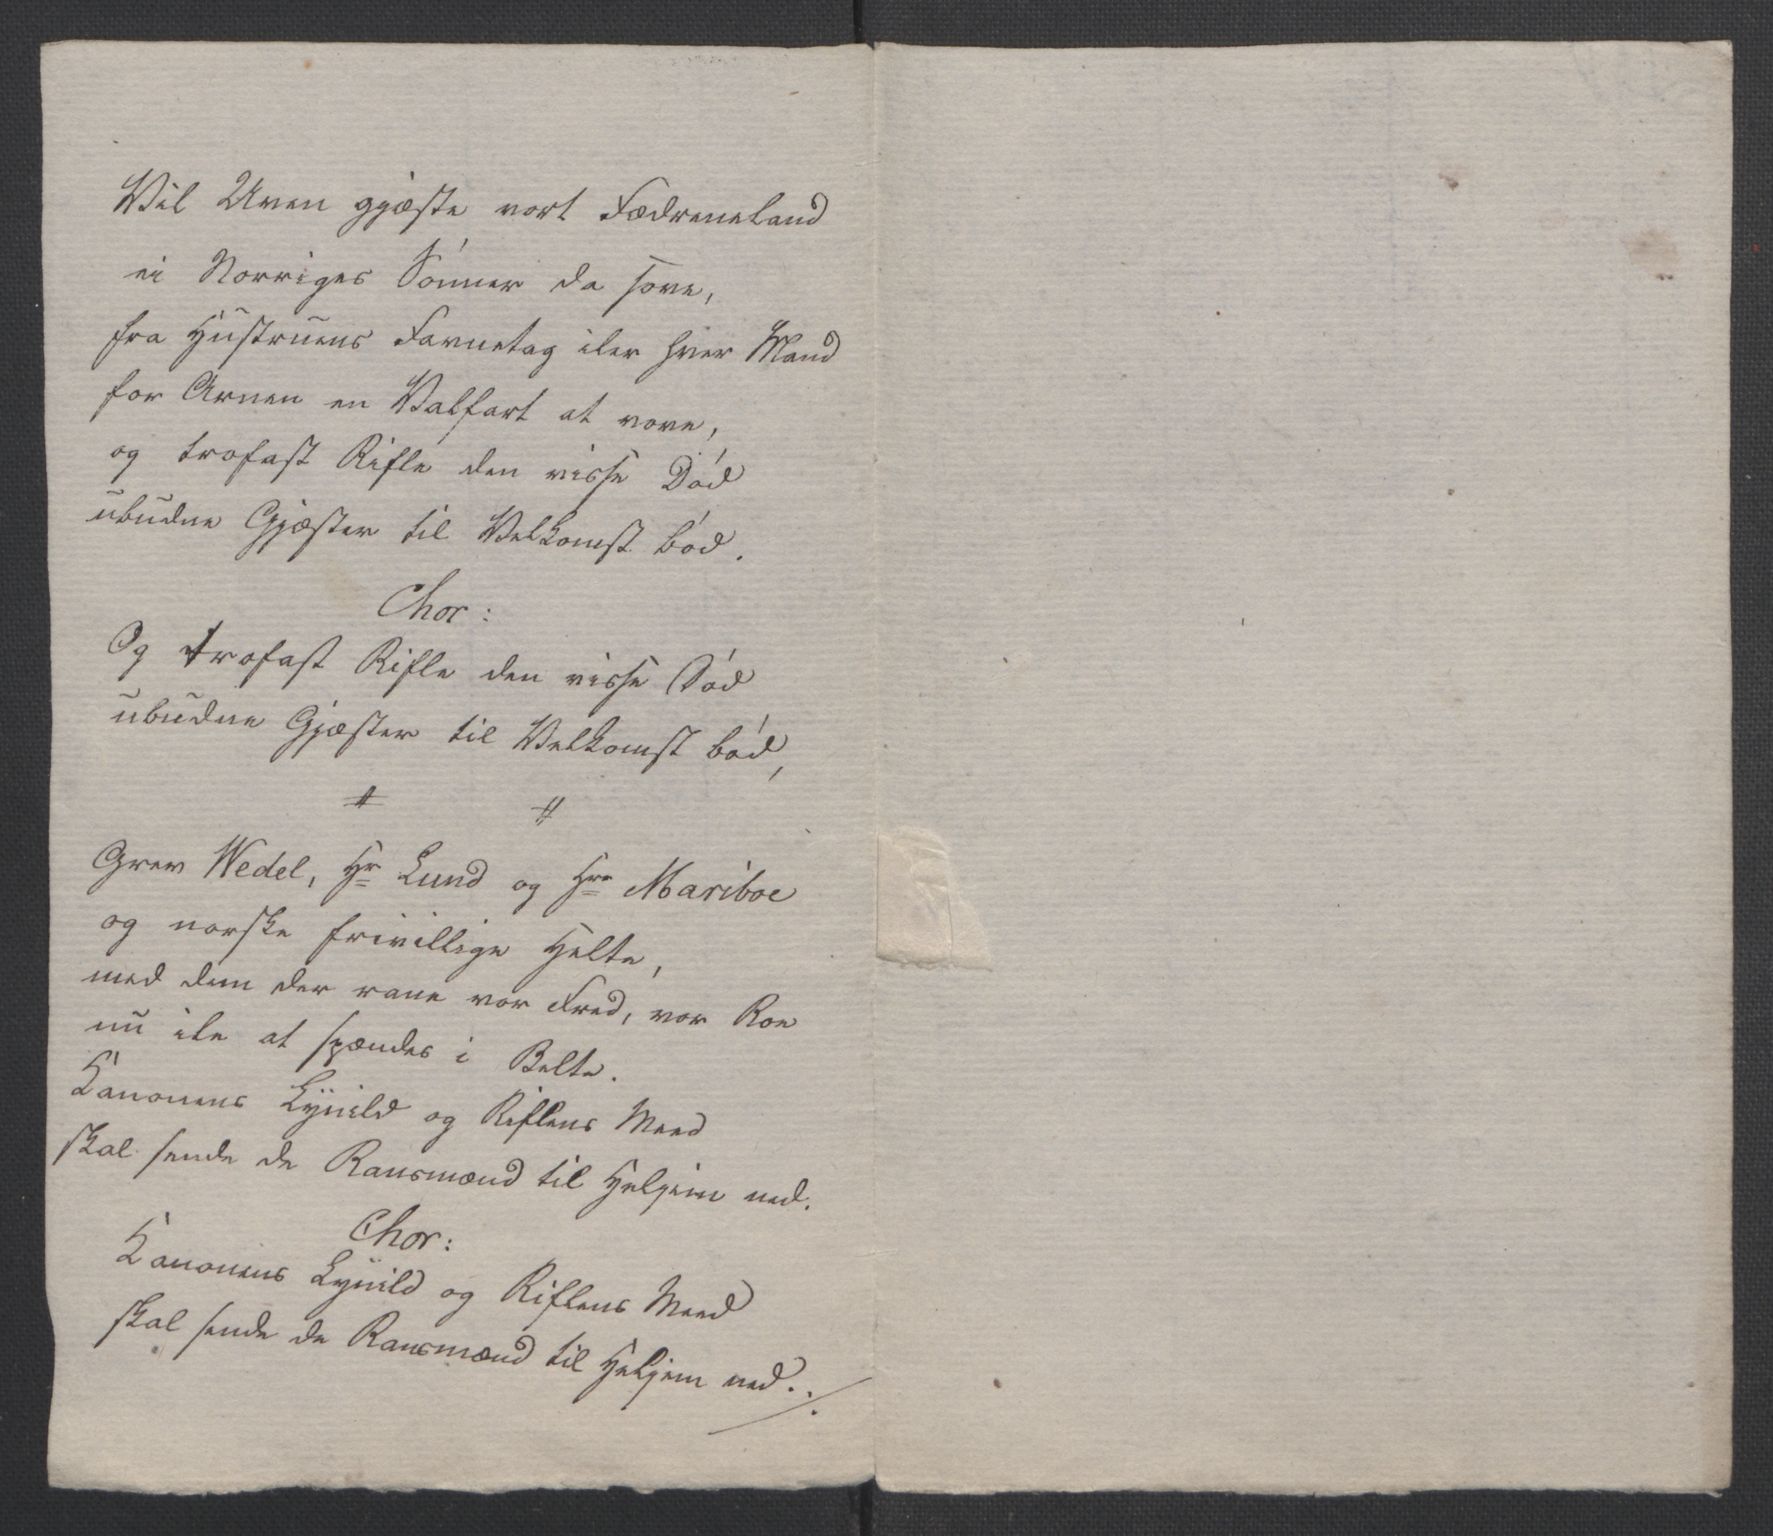 Vil Uven gjæste vort Fædreneland
ei Norriges Sónner da sove,
fra Hustruens Favnetag iler hver Mand
for Arnen en Valfart at vove,
og trofast Rifle den visse Dód
ubudne Gjæster til Velkomst bód.
Chor:
Og trofast Rifle den visse Dód
ubudne Gjæster til Velkomst bód,
# #
Grev Wedel, Hr Lund og Hrr Mariboe
og norske frivillige Helte,
med dem der rane vor Fred, vor Roe
nu ile at spændes i Belte.
Kanonens Lynild og Riflens Meed
skal sende de Ransmænd til Heljem ned.
Chor:
Kanonens Lynild og Riflens Meed
skal sende de Ransmænd til Heljem ned./.